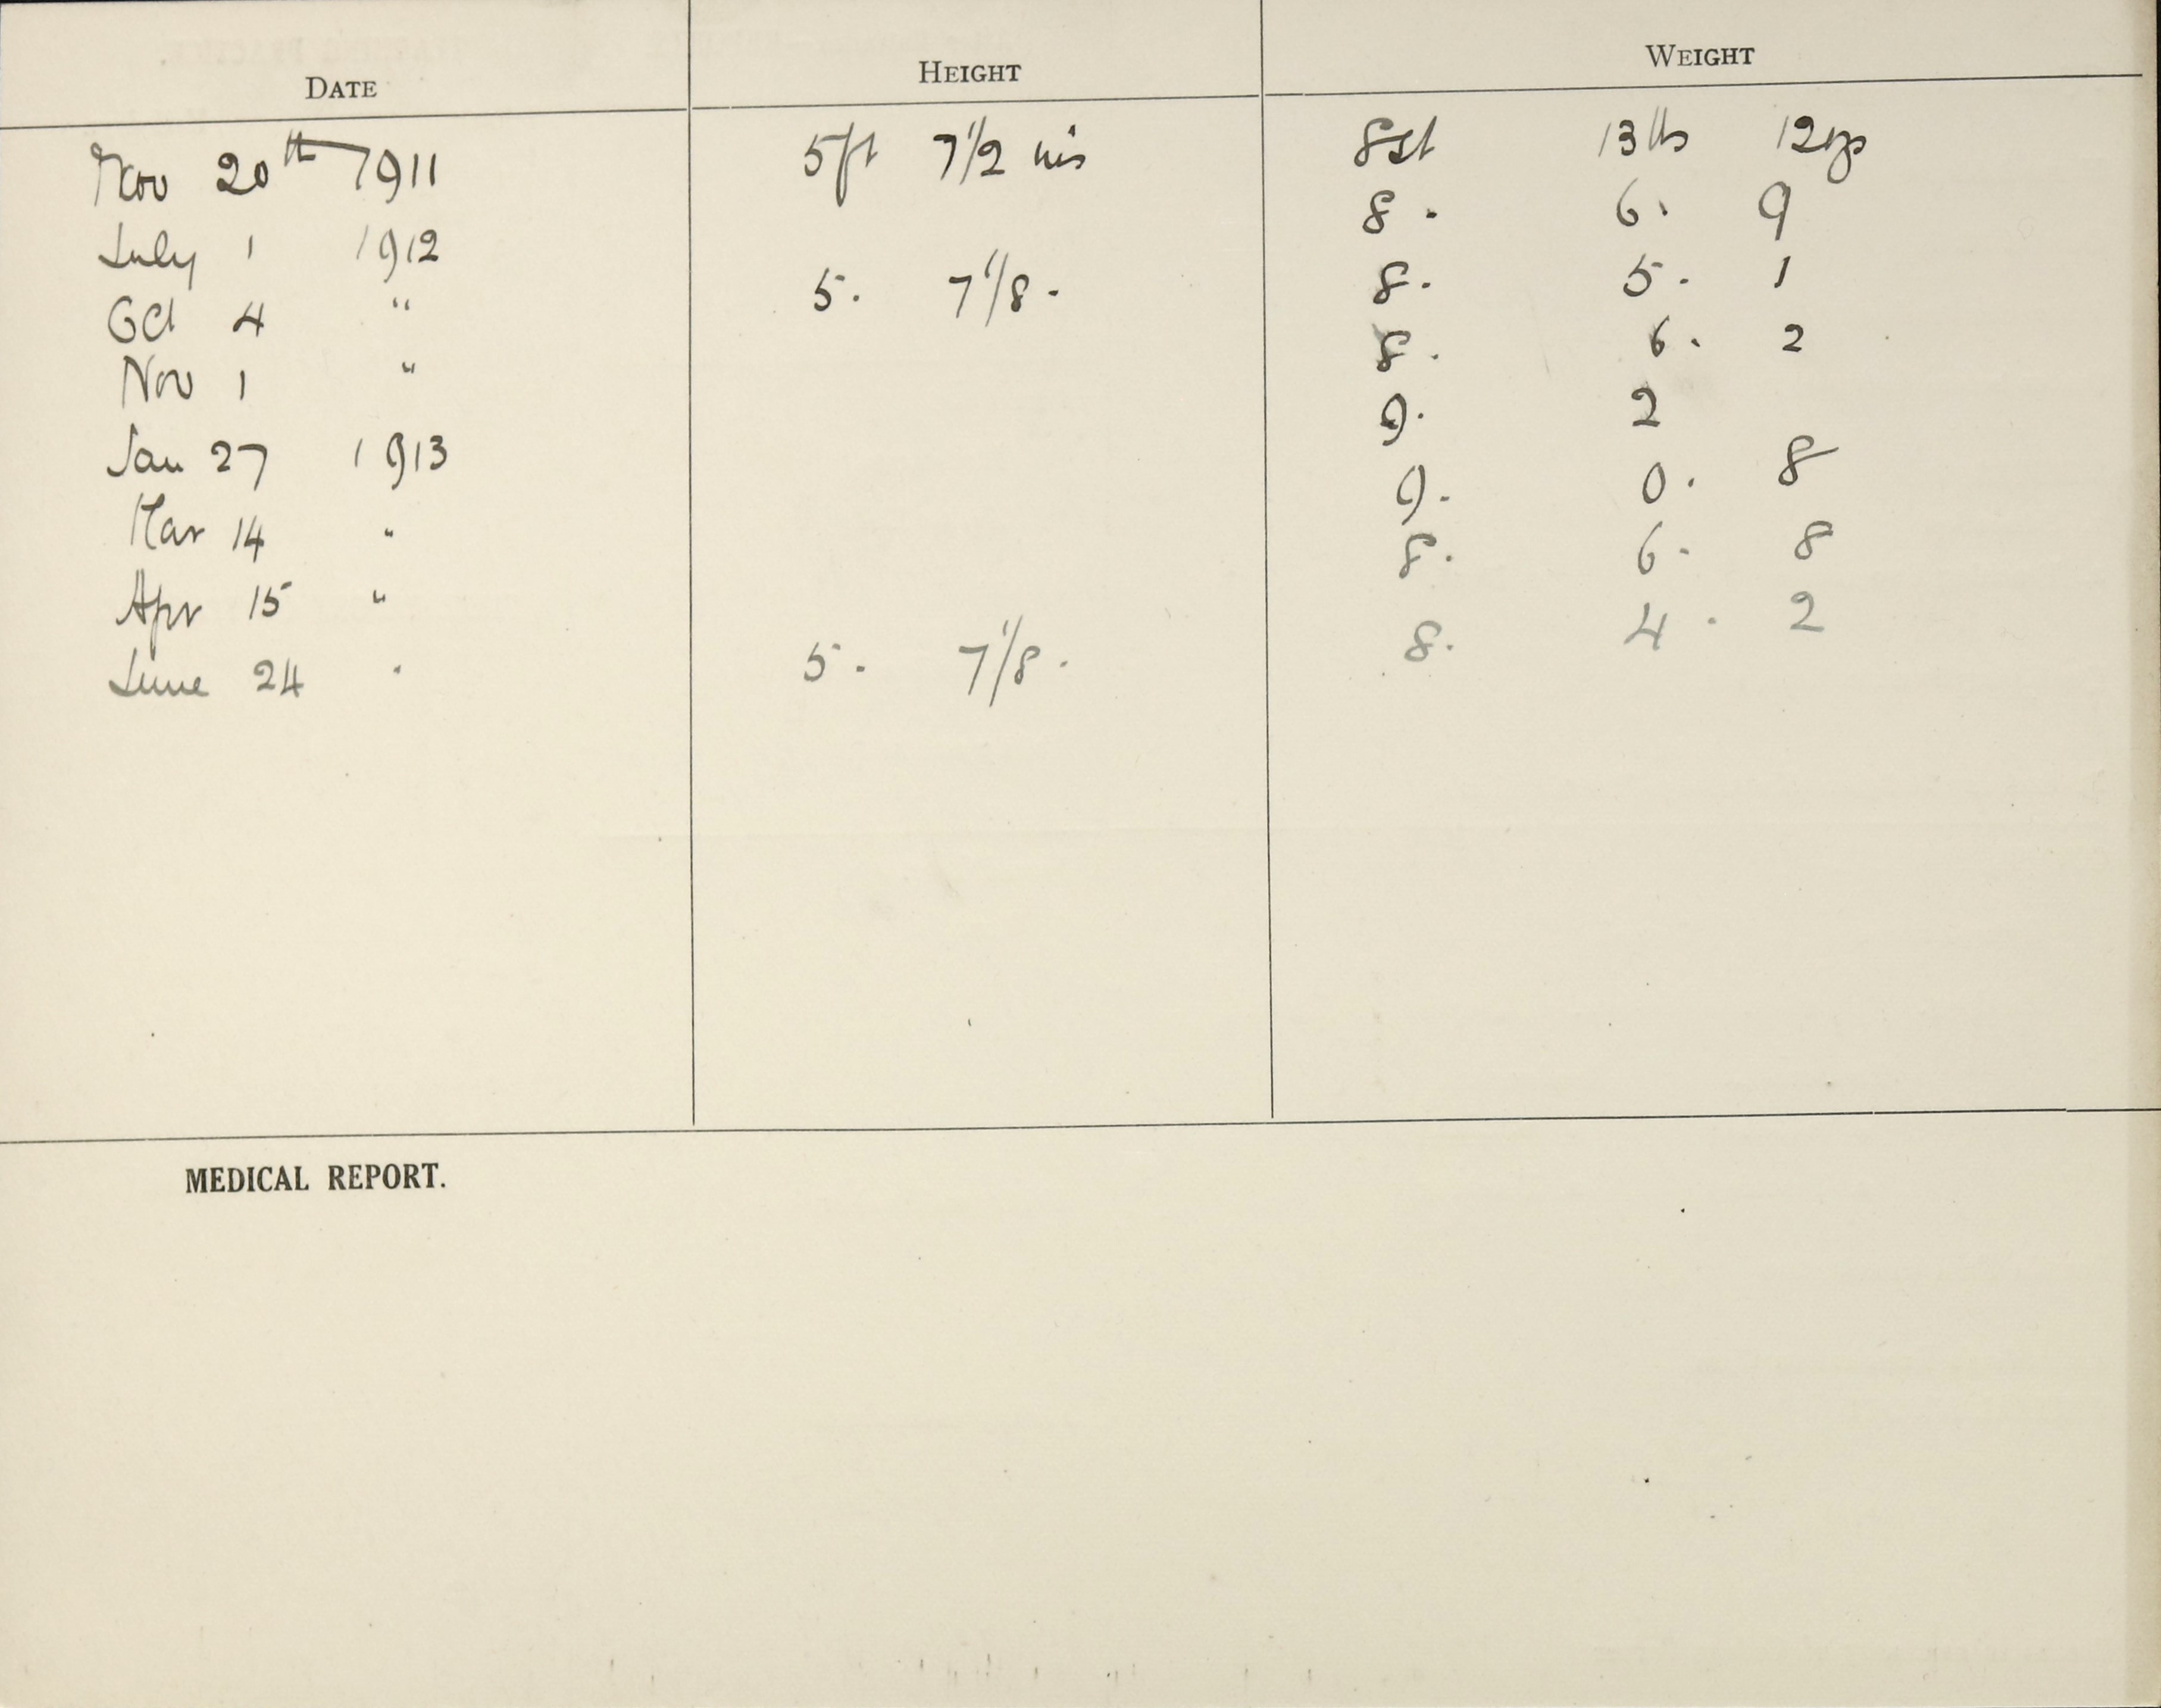 DATE HEIGHT WEIGHT
Nov 20th 1911 5ft 7 1/2 ins 8st 13 lbs 12ozs
July 1 1912 8. 6. 9
Oct 4 " 5. 7 1/8. 8. 5. 1
Nov 1 " 8. 6. 2
Jan 27 1913 9. 2
Mar 14 " 9. 0. 8
Apr 15 " 8. 6. 8
June 24 " 5. 7 1/8. 8. 4. 2
MEDICAL REPORT.